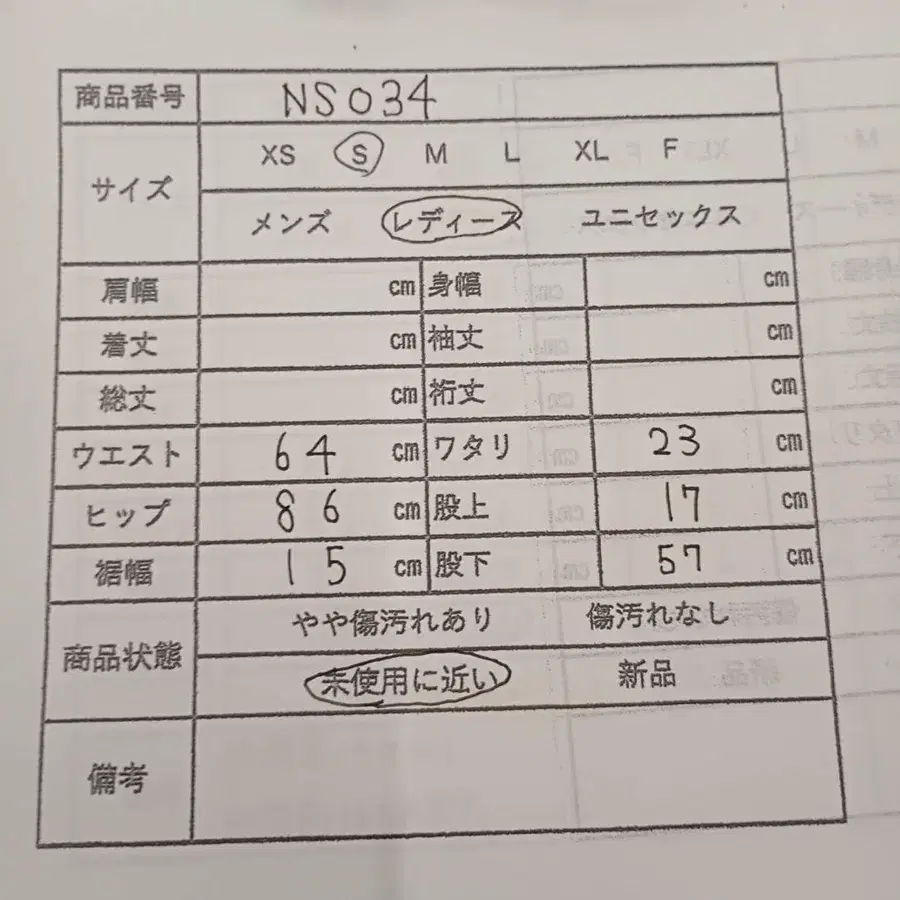 商品番号 NS034
サイズ XS S M L XL F
メンズ レディース ユニセックス
肩幅 cm 身幅 cm
着丈 cm 袖丈 cm
総丈 cm 裄丈 cm
ウエスト 64 cm ワタリ 23 cm
ヒップ 86 cm 股上 17 cm
裾幅 15 cm 股下 57 cm
商品状態 やや傷汚れあり 傷汚れなし
未使用に近い 新品
備考